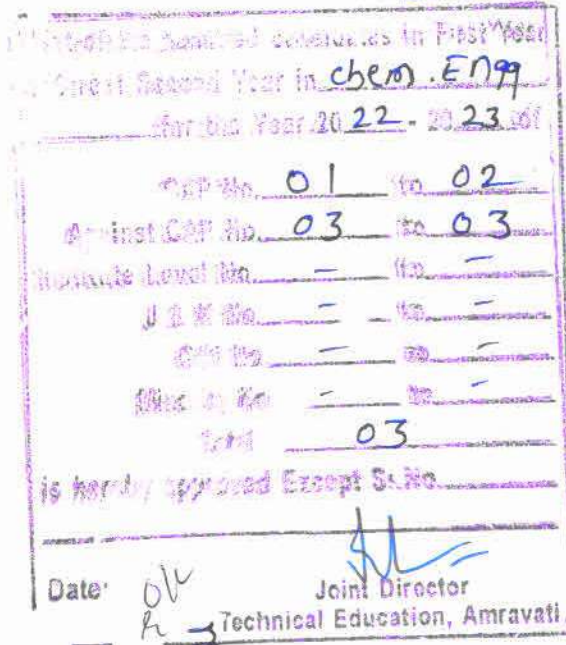 in First Year
Direct Second Year in chem. Engg
for the Year 2022 - 2023 of
CAP No. 01 to 02
Against CAP No. 03 to 03
Institute Level No. - to -
J & K No. - to -
- to -
No - to -
Total 03
is hereby approved Except Sr. No.
Date:
Joint Director
Technical Education, Amravati